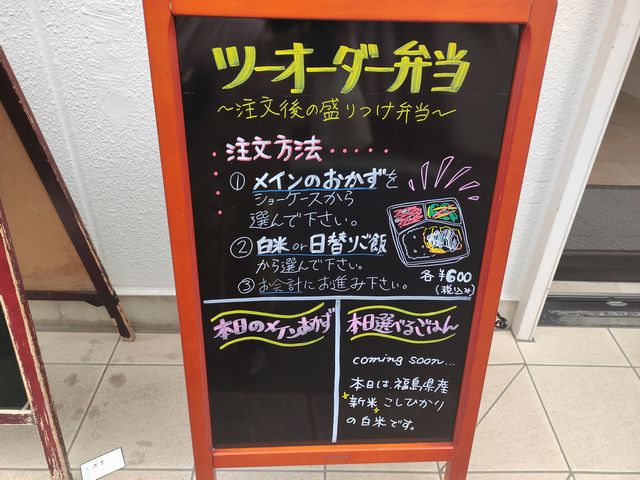 ツーオーダー弁当
～注文後の盛りつけ弁当～
注文方法
① メインのおかずを
ショーケースから
選んで下さい。
② 白米or日替りご飯
から選んで下さい。
③ お会計にお進み下さい。
各¥600
(税込み)
本日のメインおかず
本日選べるごはん
coming soon...
本日は、福島県産
新米 こしひかり
の白米です。